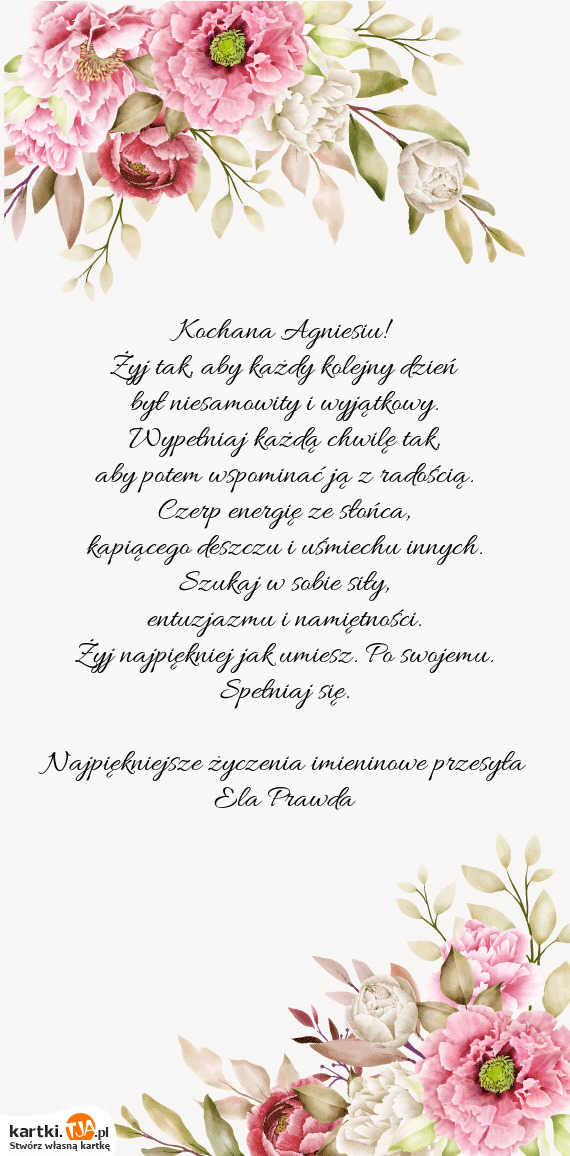 Kochana Agniesiu!
Żyj tak, aby każdy kolejny dzień
był niesamowity i wyjątkowy.
Wypełniaj każdą chwilę tak,
aby potem wspominać ją z radością.
Czerp energię ze słońca,
kapiącego deszczu i uśmiechu innych.
Szukaj w sobie siły,
entuzjazmu i namiętności.
Żyj najpiękniej jak umiesz. Po swojemu.
Spełniaj się.
Najpiękniejsze życzenia imieninowe przesyła
Ela Prawda
kartki.TJA.pl
Stwórz własną kartkę